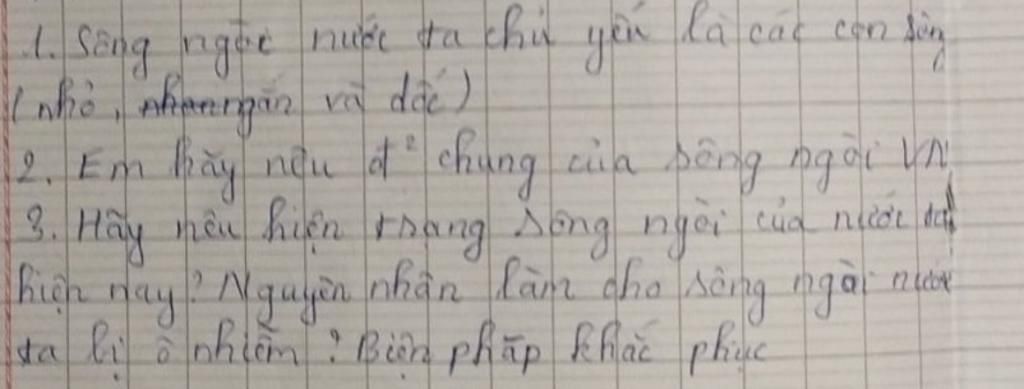 1. Sông ngòi nước ta chủ yếu là các con sông
(nhỏ, ngắn và dốc)
2. Em hãy nêu đ² chung của sông ngòi VN
3. Hãy nêu hiện trạng sông ngòi của nước ta
hiện nay? Nguyên nhân làm cho sông ngòi nước
ta bị ô nhiễm? Biện pháp khắc phục